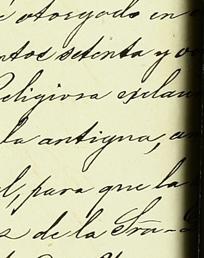 otorgado en
ntos setenta y o
Religiosa esclau
la antigua, a
l, para que la
s de la Sra